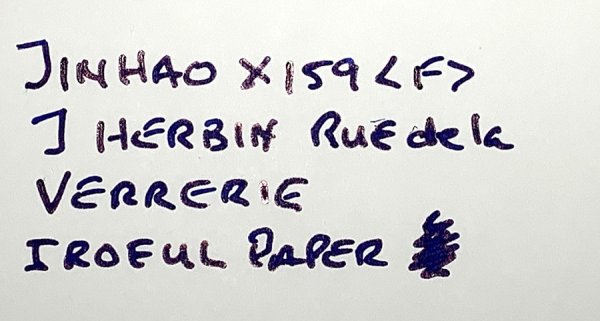 JINHAO X159 <F>
J HERBIN RUE de la
VERRERIE
IROFUL PAPER